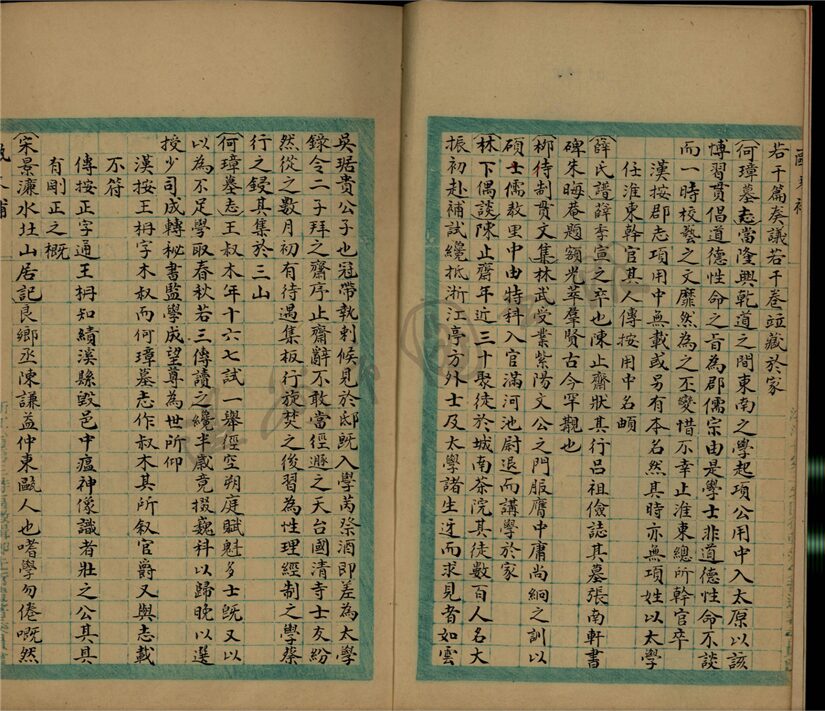 若干篇奏議若干卷竝藏於家
何璋墓志當隆興乾道之間東南之學起項公用中入太原以該
博習貫倡道德性命之旨為郡儒宗由是學士非道德性命不談
而一時校藝之文靡然為之丕變惜不幸止淮東總所幹官卒
漢按郡志項用中無載或另有本名然其時亦無項姓以太學
任淮東幹官其人傳按用中名頔
薛氏譜薛季宣之卒也陳止齋狀其行呂祖儉誌其墓張南軒書
碑朱晦菴題額光萃羣賢古今罕觀也
柳待制貫文集林武受業紫陽文公之門服膺中庸尚絅之訓以
碩士儒教里中由特科入官滿河池尉退而講學於家
林下偶談陳止齋年近三十聚徒於城南茶院其徒數百人名大
振初赴補試纔抵浙江亭方外士及太學諸生迓而求見者如雲
吳琚貴公子也冠帶執刺候見於邸既入學芮祭酒即差為太學
錄令二子拜之齋序止齋辭不敢當徑遯之天台國清寺士友紛
然從之數月初有待遇集板行旋焚之後習為性理經制之學蔡
行之鋟其集於三山
何璋墓志王叔本年十六七試一舉徑空朔庭賦魁多士既又以
以為不足學取春秋若三傳讀之纔半歲竟掇巍科以歸晚以選
授少司成轉秘書監學成望尊為世所仰
漢按王枏字木叔而何璋墓志作叔木其所叙官爵又與志載
不符
傳按正字通王枏知績溪縣毀邑中瘟神像識者壯之公其具
有剛正之概
宋景濂水北山居記良鄉丞陳謙益仲東甌人也嗜學勿倦嘅然